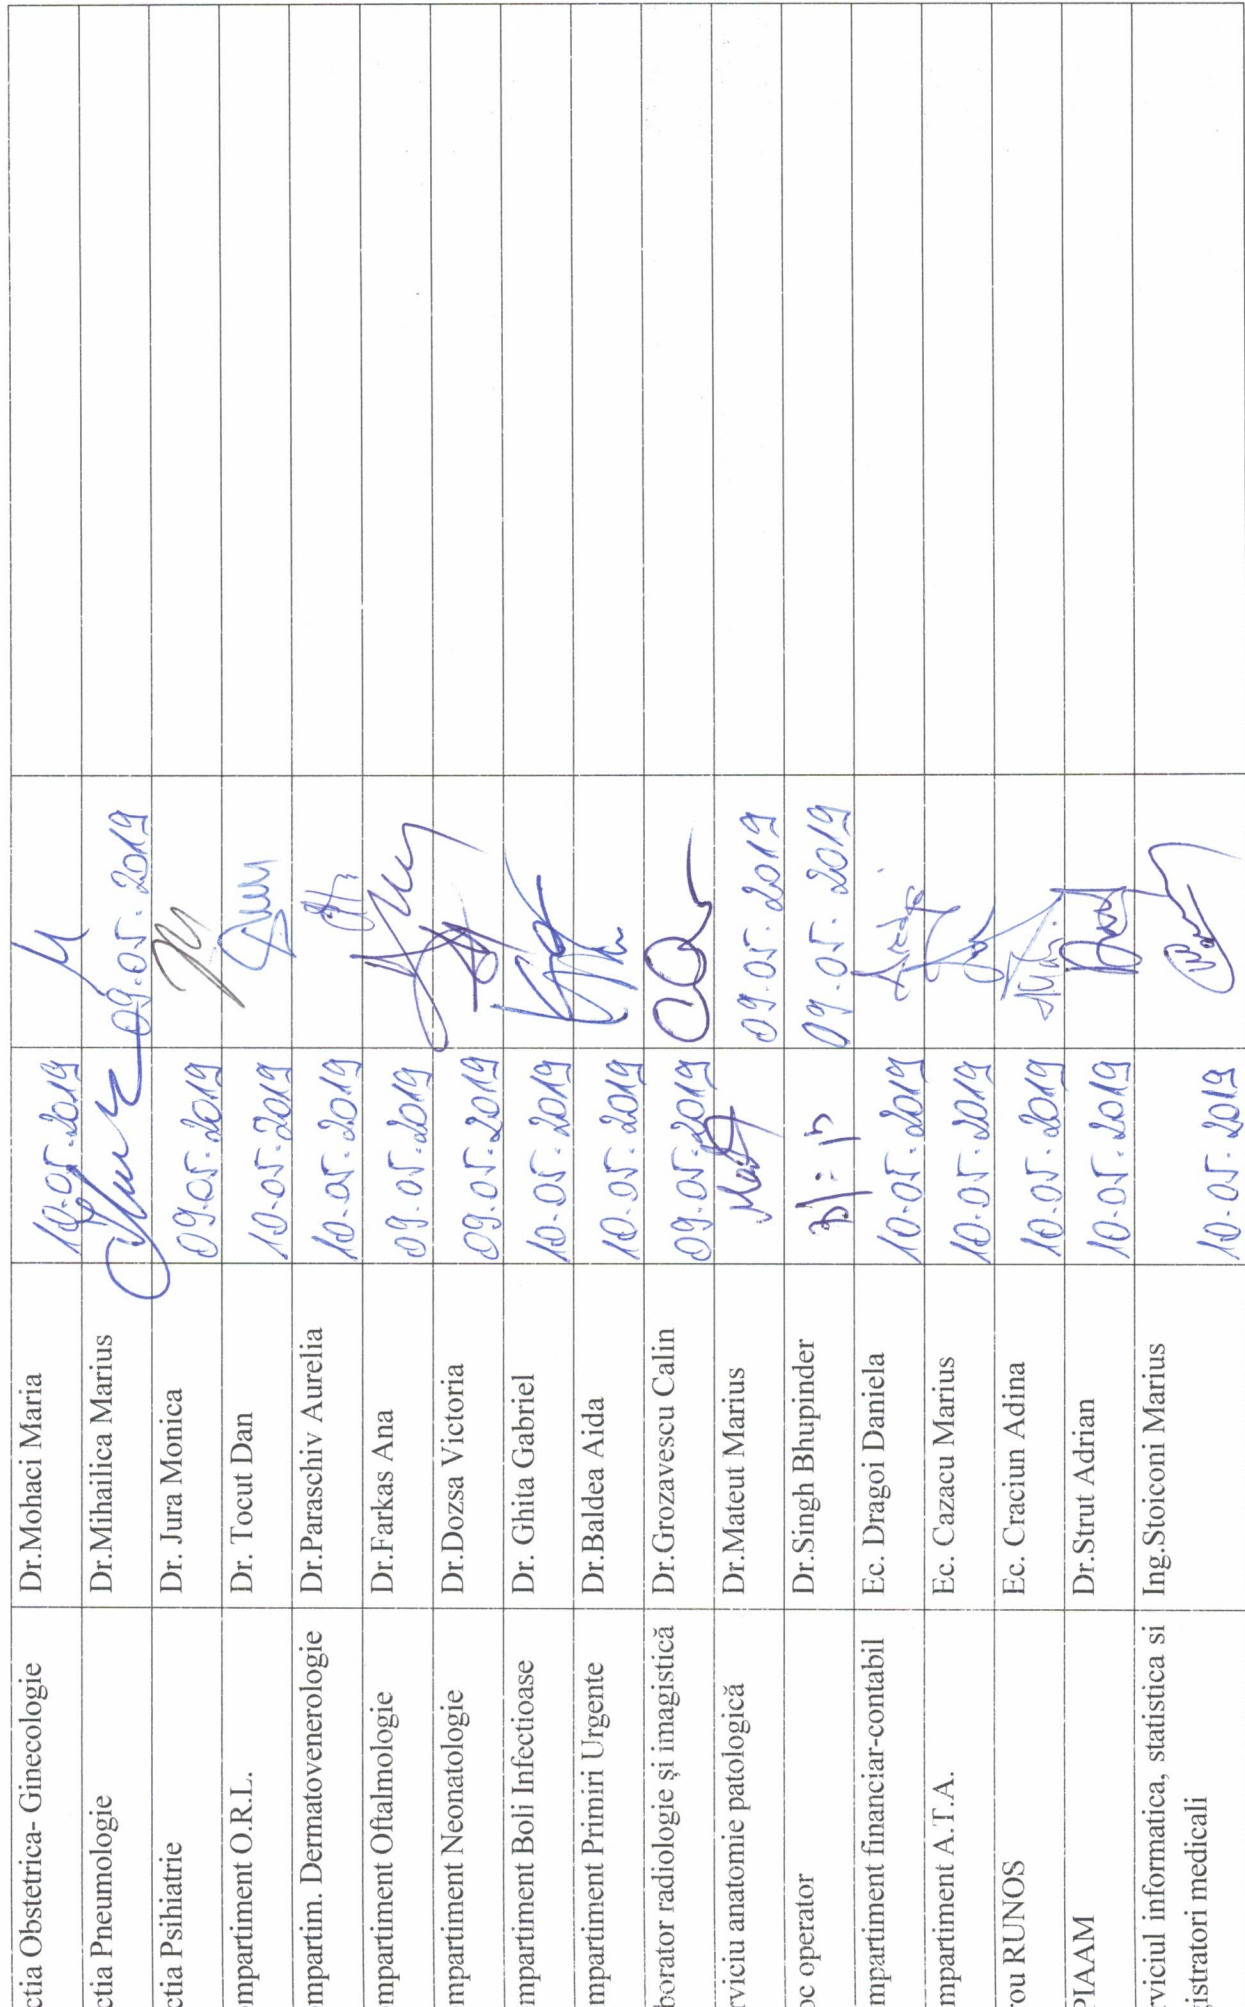 ctia Obstetrica- Ginecologie Dr.Mohaci Maria 10.05.2019
ctia Pneumologie Dr.Mihailica Marius 09.05.2019
ctia Psihiatrie Dr. Jura Monica 09.05.2019
mpartiment O.R.L. Dr. Tocut Dan 10.05.2019
mpartim. Dermatovenerologie Dr.Paraschiv Aurelia 10.05.2019
mpartiment Oftalmologie Dr.Farkas Ana 09.05.2019
mpartiment Neonatologie Dr.Dozsa Victoria 09.05.2019
mpartiment Boli Infectioase Dr. Ghita Gabriel 10.05.2019
mpartiment Primiri Urgente Dr.Baldea Aida 10.05.2019
borator radiologie și imagistică Dr.Grozavescu Calin 09.05.2019
rviciu anatomie patologică Dr.Mateut Marius 09.05.2019
oc operator Dr.Singh Bhupinder 09.05.2019
mpartiment financiar-contabil Ec. Dragoi Daniela 10.05.2019
mpartiment A.T.A. Ec. Cazacu Marius 10.05.2019
ou RUNOS Ec. Craciun Adina 10.05.2019
PIAAM Dr.Strut Adrian 10.05.2019
rviciul informatica, statistica si Ing.Stoiconi Marius
istratori medicali 10.05.2019